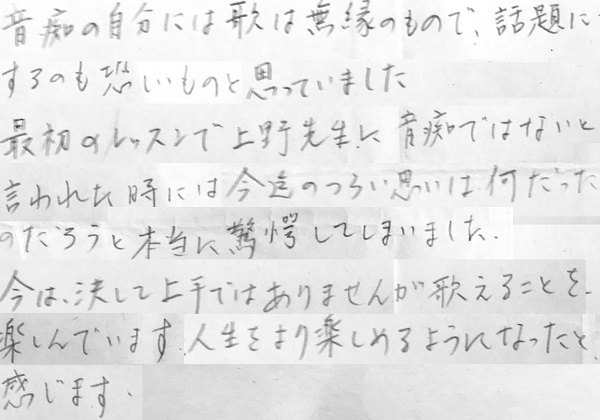 音痴の自分には歌は無縁のもので、話題に
するのも恐いものと思っていました
最初のレッスンで上野先生に音痴ではないと
言われた時には今迄のつらい思いは何だった
のだろうと本当に驚愕してしまいました.
今は、決して上手ではありませんが歌えることを
楽しんでいます.人生をより楽しめるようになったと
感じます.